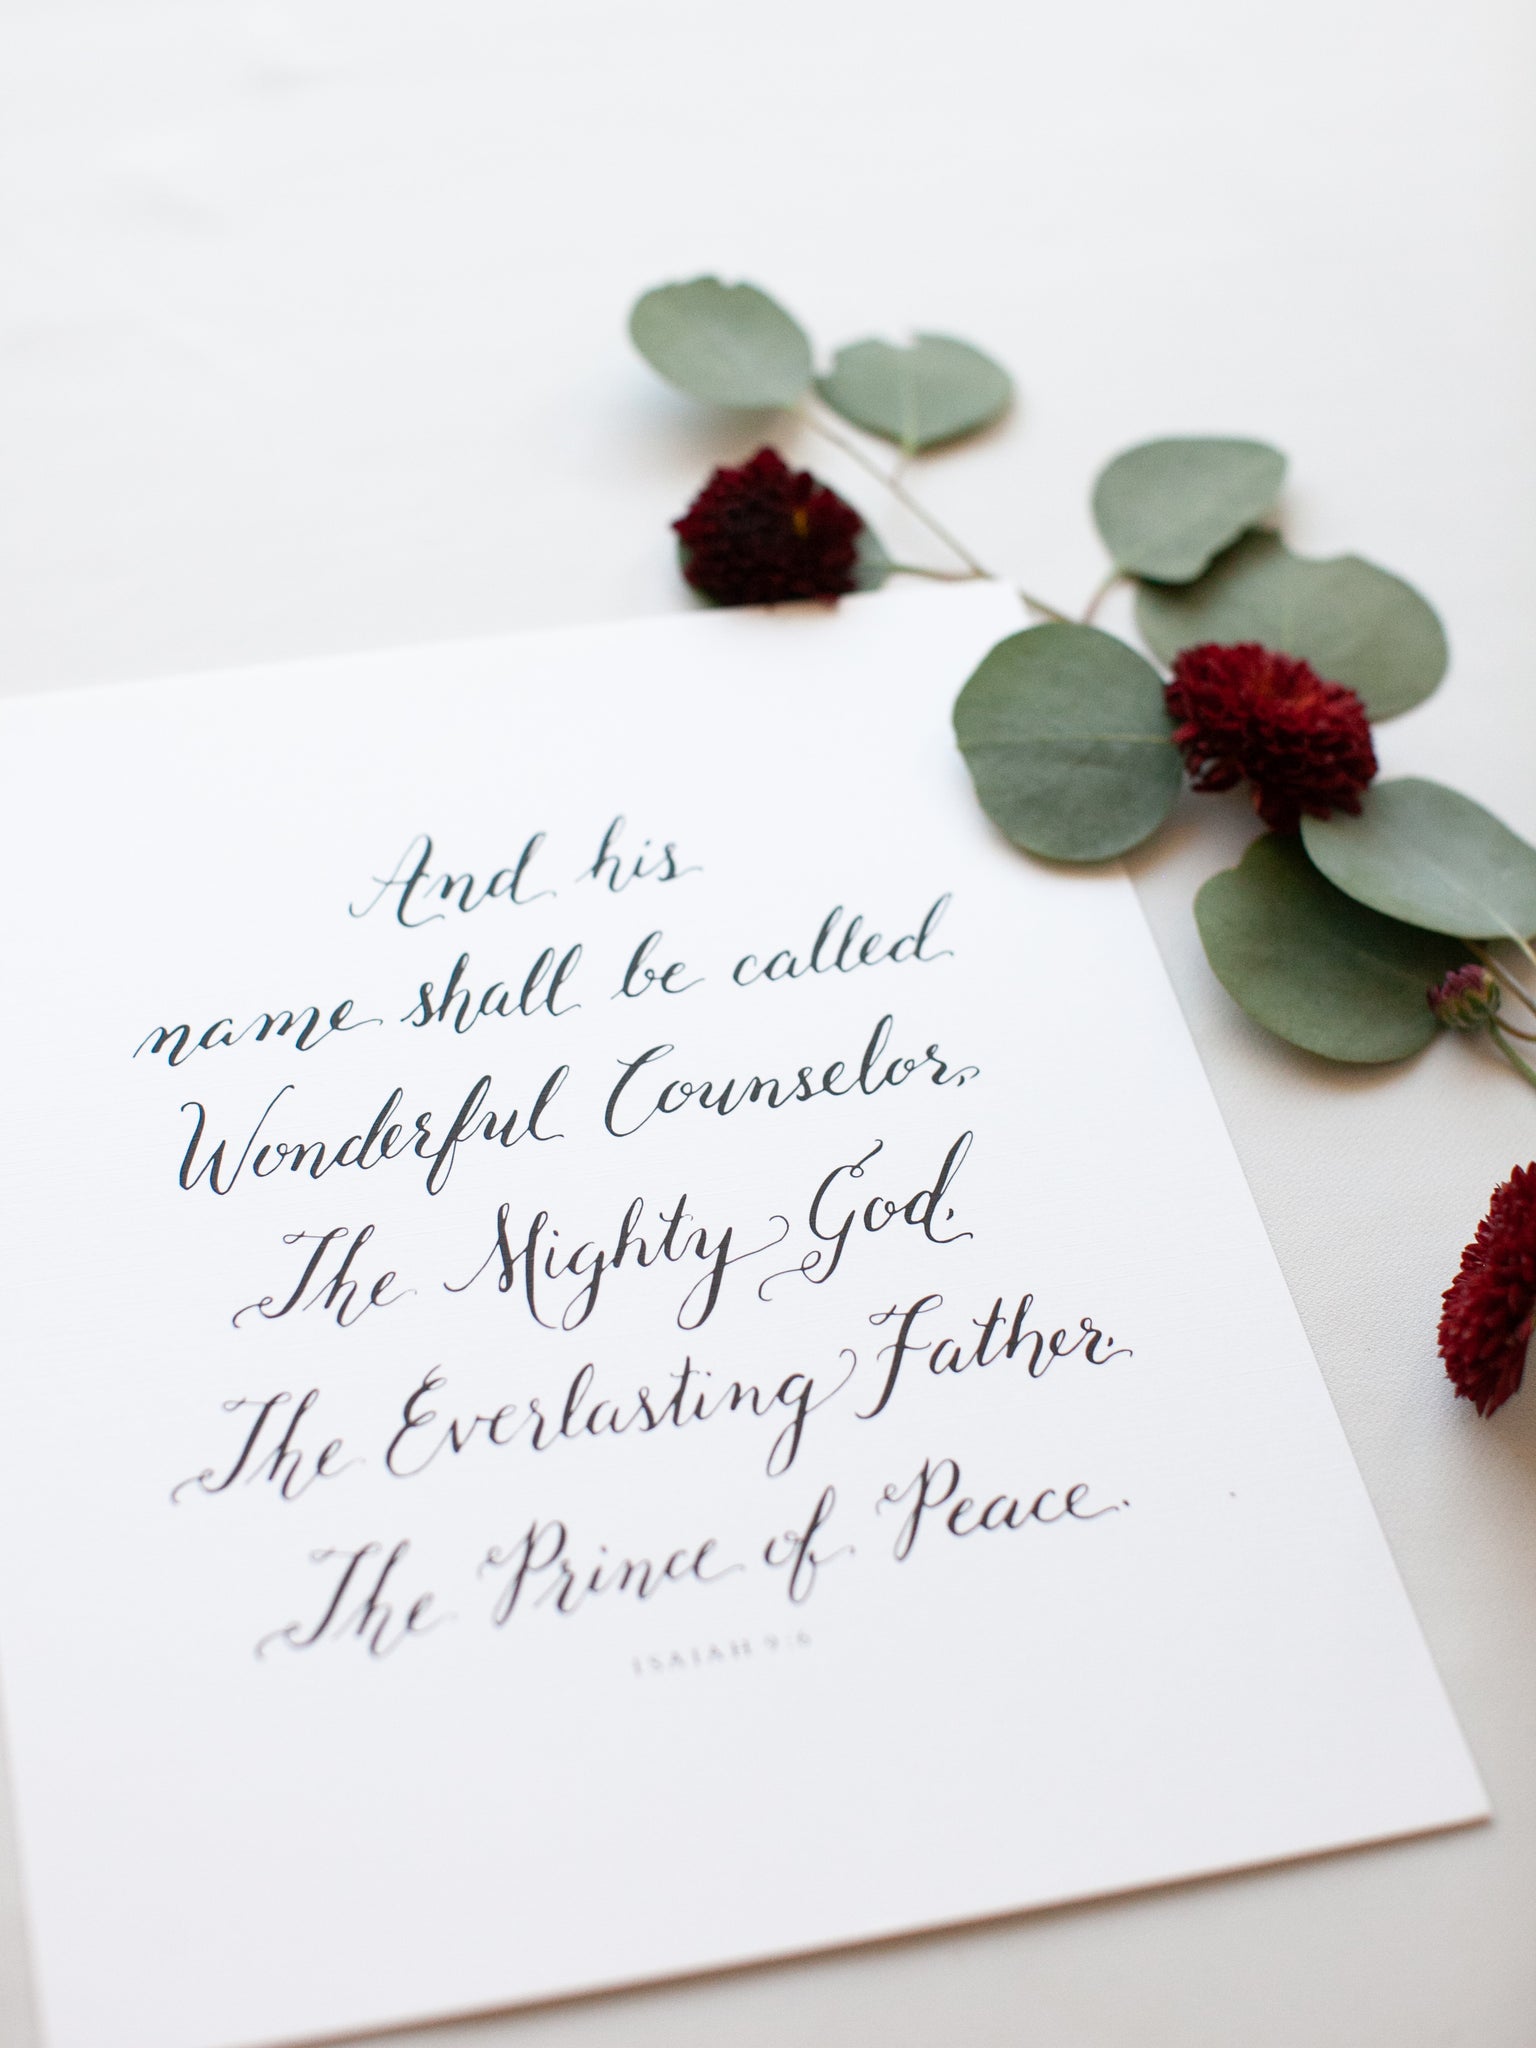 And his
name shall be called
Wonderful Counselor,
The Mighty God,
The Everlasting Father,
The Prince of Peace.
ISAIAH 9:6